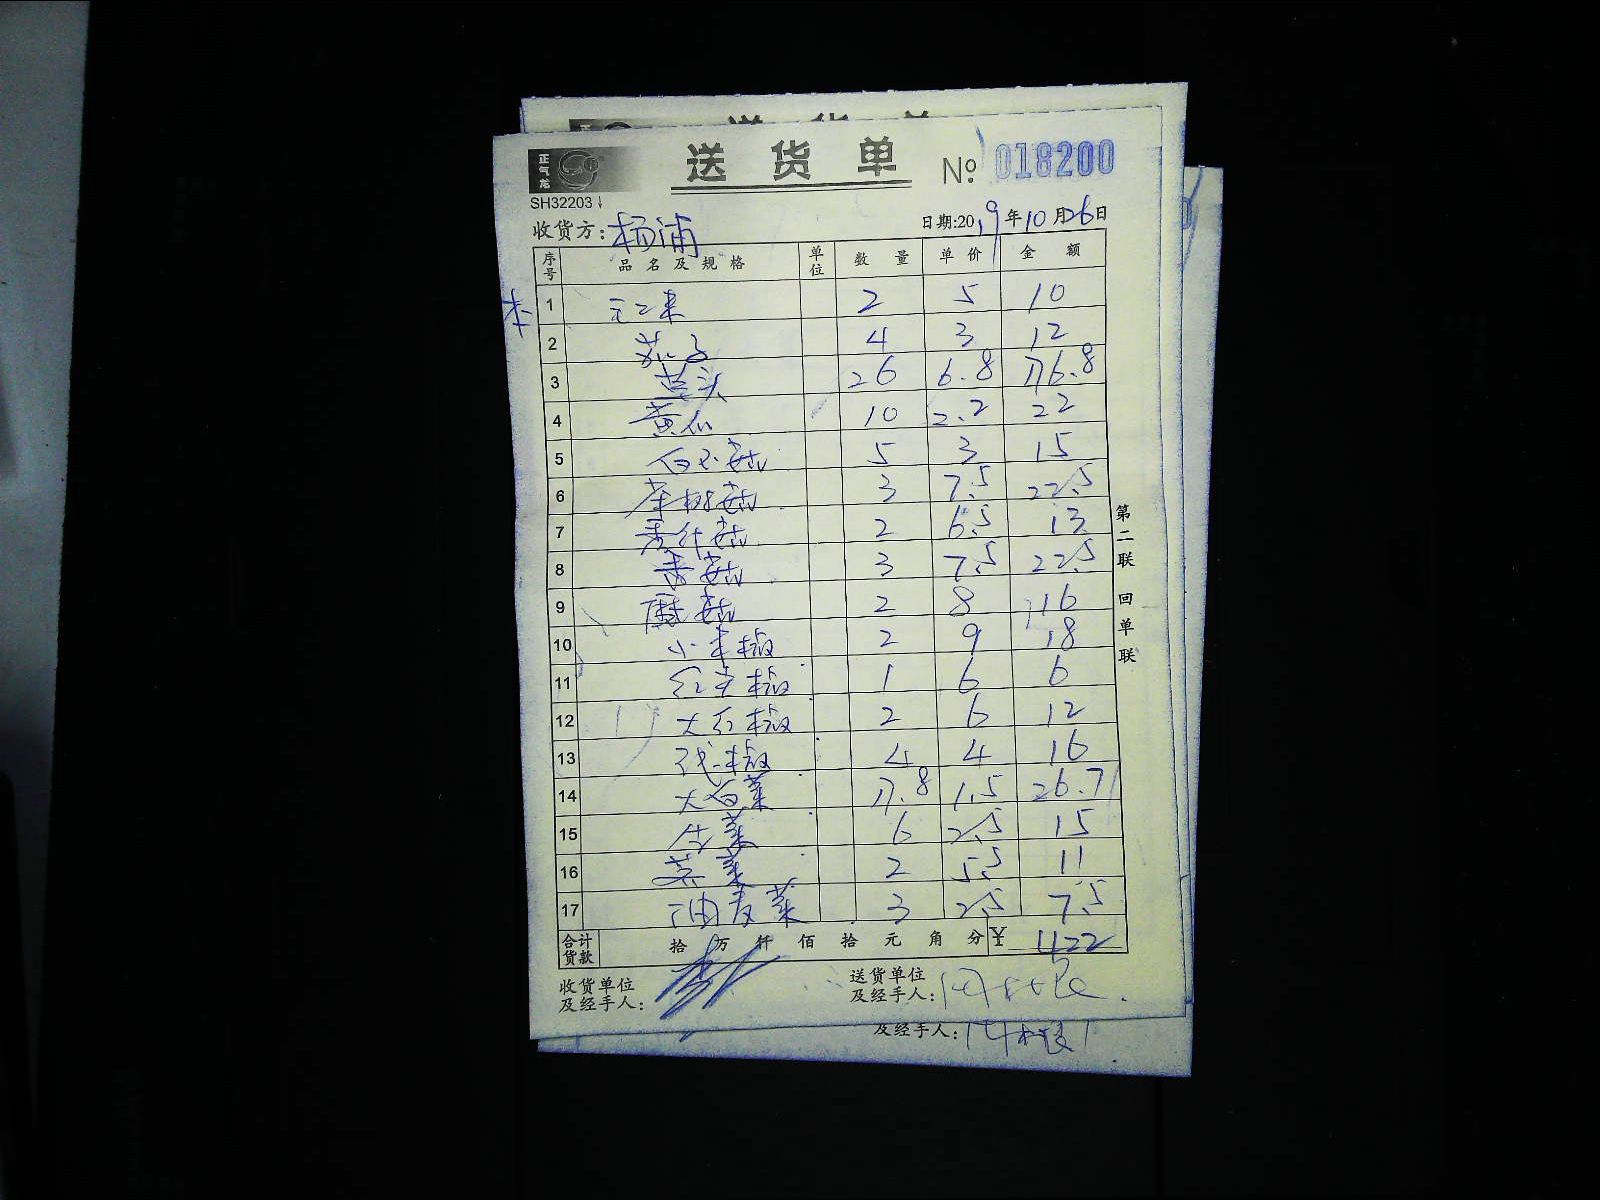 送货单
正气龙
送货单 № 018200
SH32203
收货方: 杨浦 日期:2019年10月26日
序号 品名及规格 单位 数量 单价 金额
本
1 2 5 10
2 茄子 4 3 12
3 草头 26 6.8 176.8
4 黄瓜 10 2.2 22
5 白玉菇 5 3 15
6 茶树菇 3 7.5 22.5
7 秀珍菇 2 6.5 13
8 香菇 3 7.5 22.5
9 蘑菇 2 8 16
10 小米椒 2 9 18
11 红尖椒 1 6 6
12 大红椒 2 6 12
13 线椒 4 4 16
14 大白菜 17.8 1.5 26.7
15 生菜 6 2.5 15
16 2 5.5 11
17 油麦菜 3 2.5 7.5
合计货款 拾 万 仟 佰 拾 元 角 分 ¥ 422
收货单位及经手人:
送货单位及经手人:
及经手人:
第二联 回单联